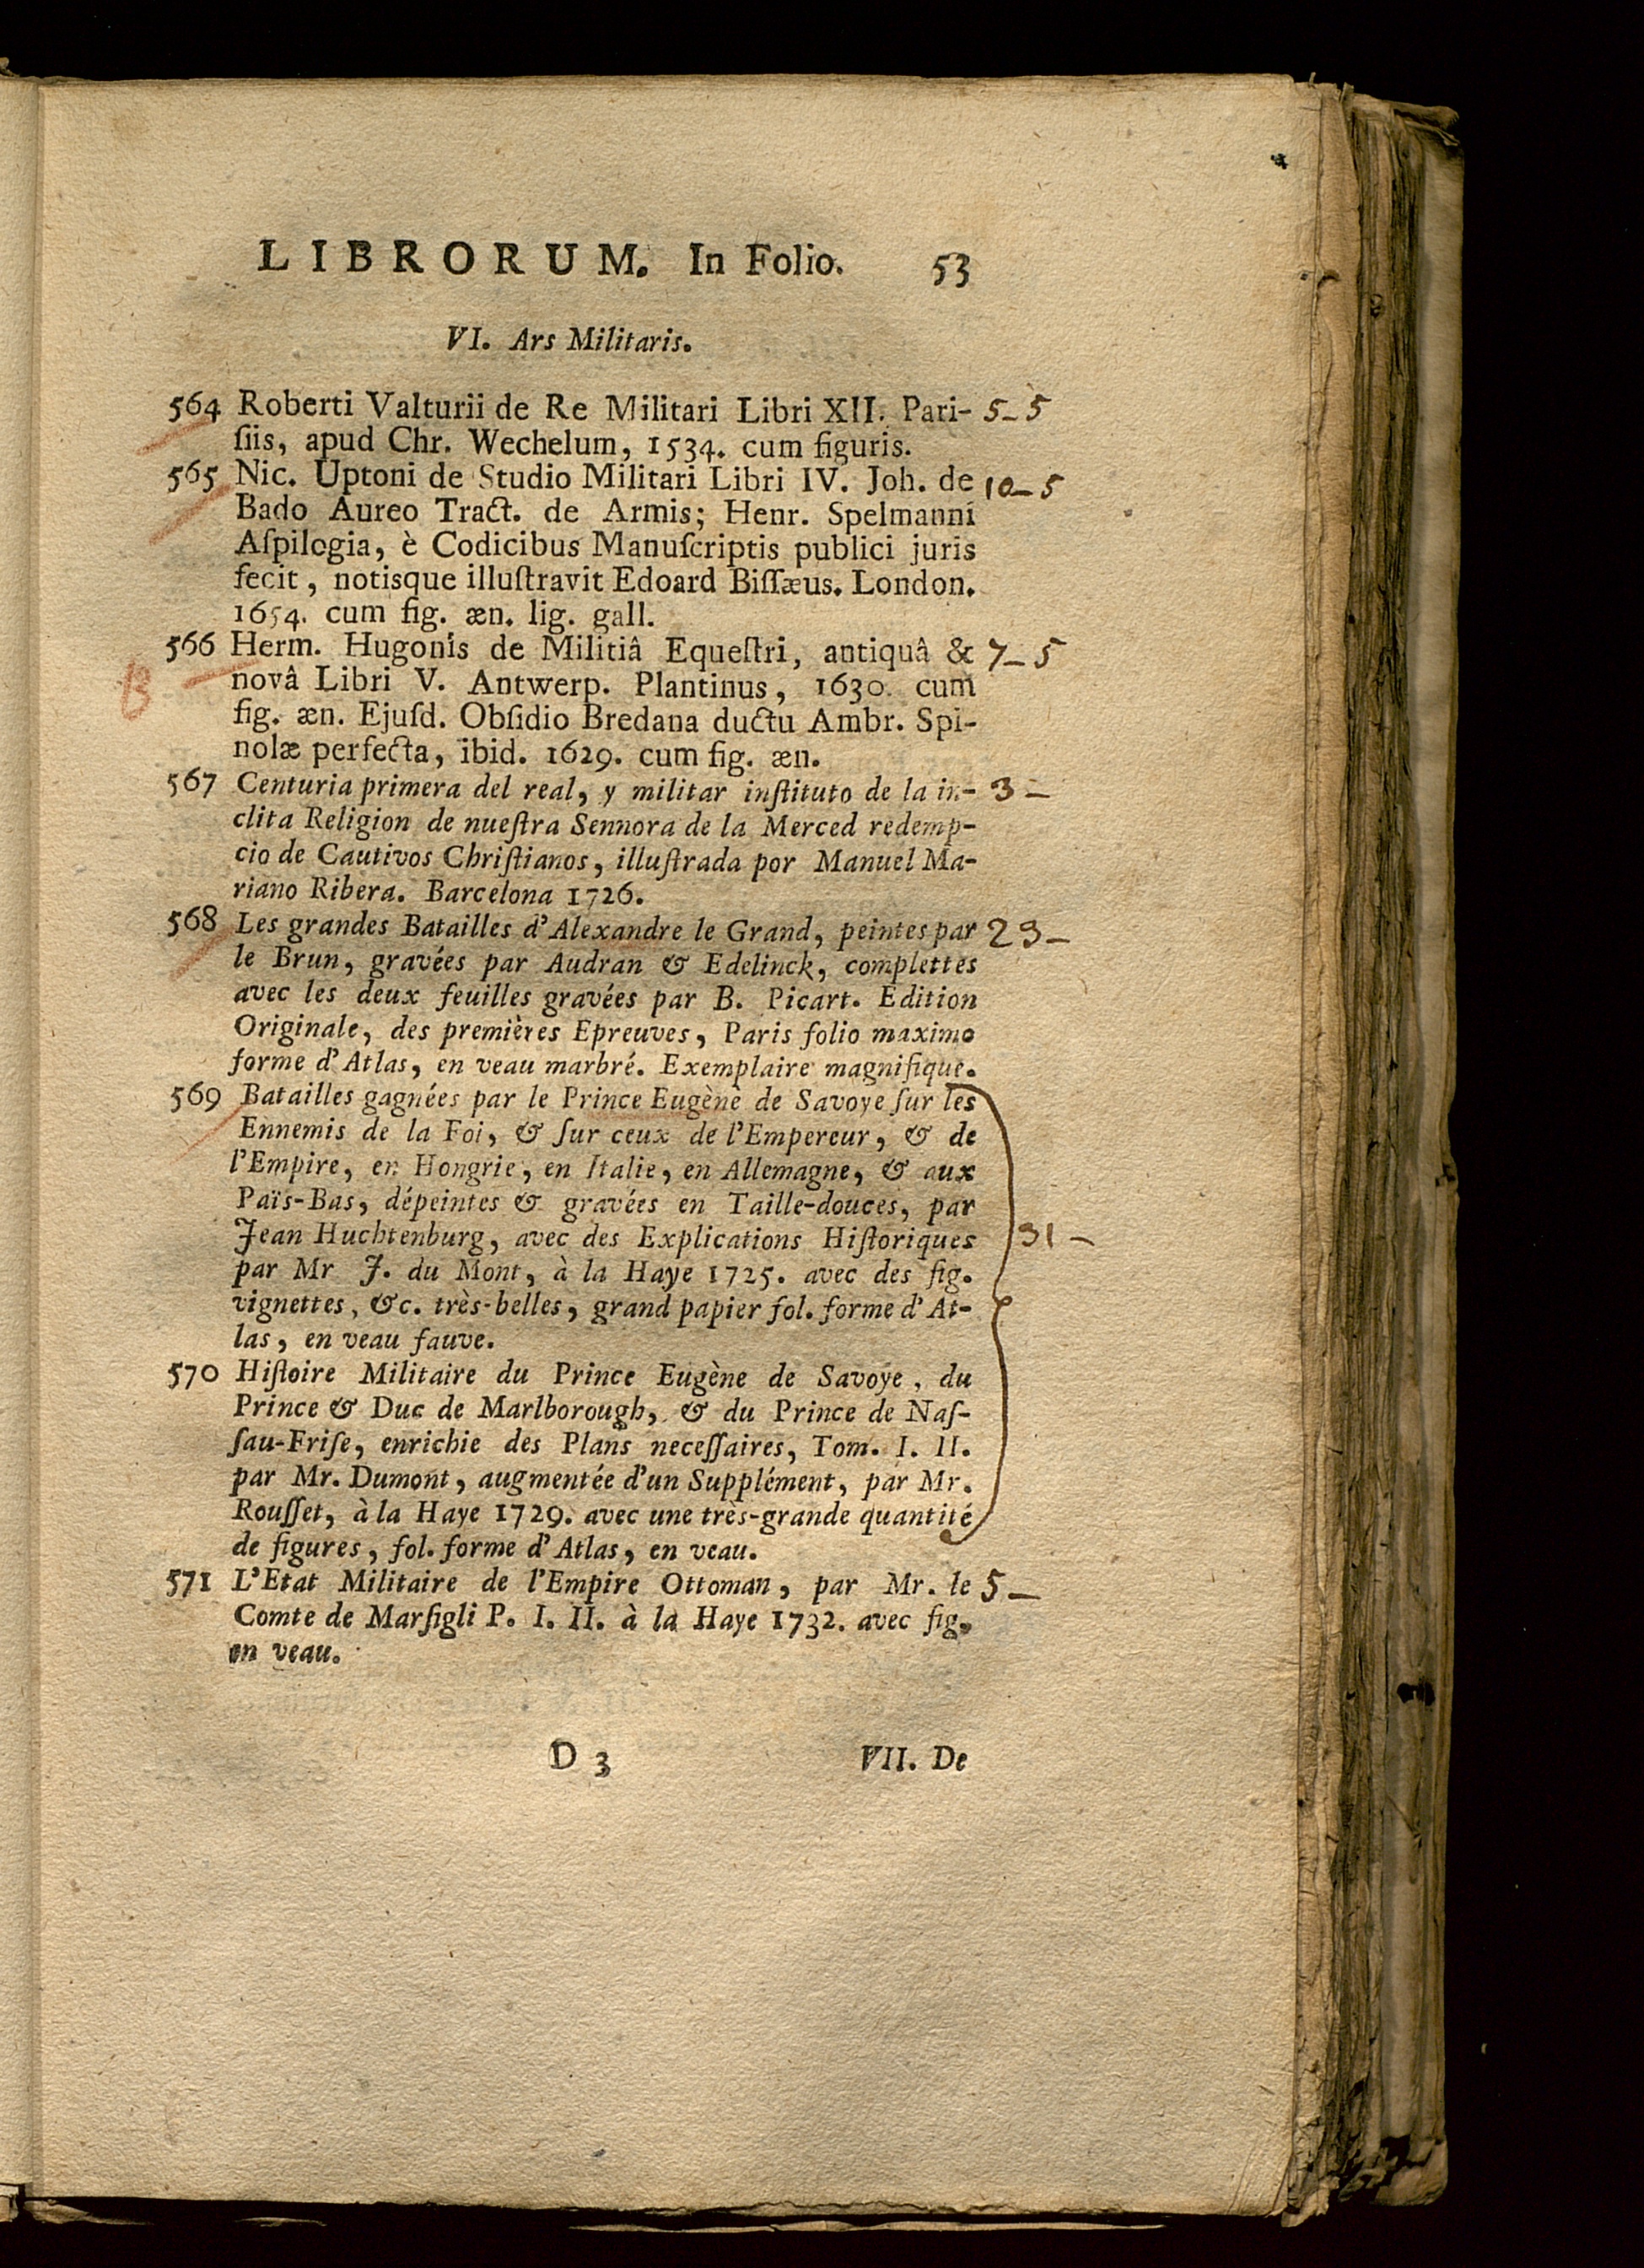 LIBRORUM. In Folio. 53
VI. Ars Militaris.
564 Roberti Valturii de Re Militari Libri XII. Pari- 5-5
ſiis, apud Chr. Wechelum, 1534. cum figuris.
565 Nic. Uptoni de Studio Militari Libri IV. Joh. de 10-5
Bado Aureo Tract. de Armis; Henr. Spelmanni
Aſpilogia, è Codicibus Manuſcriptis publici juris
fecit, notisque illuſtravit Edoard Biſſæus. London.
1654. cum fig. æn. lig. gall.
566 Herm. Hugonis de Militiâ Equeſtri, antiquâ & 7-5
B novâ Libri V. Antwerp. Plantinus, 1630. cum
fig. æn. Ejuſd. Obſidio Bredana ductu Ambr. Spi-
nolæ perfecta, ibid. 1629. cum fig. æn.
567 Centuria primera del real, y militar inſtituto de la in- 3-
clita Religion de nueſtra Sennora de la Merced redemp-
cio de Cautivos Chriſtianos, illuſtrada por Manuel Ma-
riano Ribera. Barcelona 1726.
568 Les grandes Batailles d'Alexandre le Grand, peintes par 23-
le Brun, gravées par Audran & Edelinck, complettes
avec les deux feuilles gravées par B. Picart. Edition
Originale, des premières Epreuves, Paris folio maximo
forme d'Atlas, en veau marbré. Exemplaire magnifique.
569 Batailles gagnées par le Prince Eugène de Savoye ſur les
Ennemis de la Foi, & ſur ceux de l'Empereur, & de
l'Empire, en Hongrie, en Italie, en Allemagne, & aux
Païs-Bas, dépeintes & gravées en Taille-douces, par
Jean Huchtenburg, avec des Explications Hiſtoriques 31-
par Mr J. du Mont, à la Haye 1725. avec des fig.
vignettes, &c. très-belles, grand papier fol. forme d'At-
las, en veau fauve.
570 Hiſtoire Militaire du Prince Eugène de Savoye, du
Prince & Duc de Marlborough, & du Prince de Naſ-
ſau-Friſe, enrichie des Plans neceſſaires, Tom. I. II.
par Mr. Dumont, augmentée d'un Supplément, par Mr.
Rouſſet, à la Haye 1729. avec une très-grande quantité
de figures, fol. forme d'Atlas, en veau.
571 L'Etat Militaire de l'Empire Ottoman, par Mr. le 5-
Comte de Marſigli P. I. II. à la Haye 1732. avec fig.
en veau.
D 3 VII. De